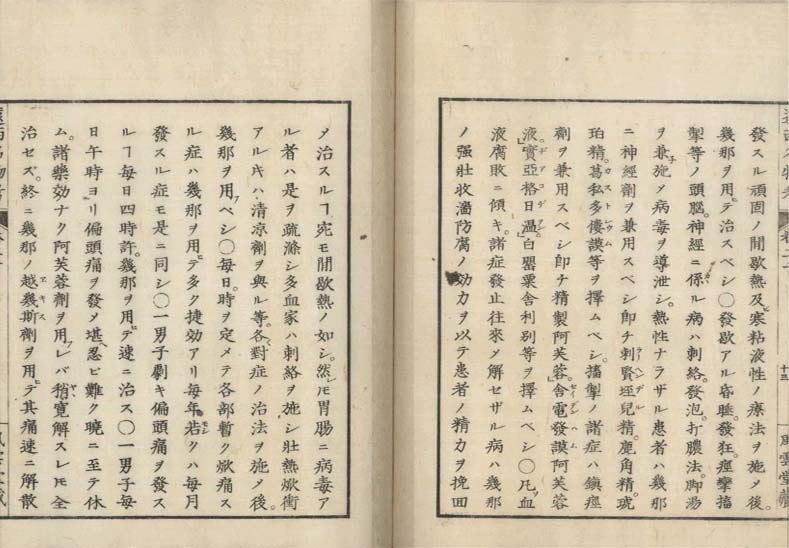 發スル頑固ノ間歇熱及ビ寒粘液性ノ療法ヲ施メ後。
幾那ヲ用テ治スベシ〇發歇アル昏睡。發狂。痙攣搐
掣等ノ頭腦。神經ニ係ル病ハ刺絡。發泡。打膿法。脚湯
ヲ兼子施メ病毒ヲ導泄シ。熱性ナラザル患者ハ幾那
ニ神經劑ヲ兼用スベシ即チ刺賢垤兒精。鹿角精。琥
珀精。葛私多僂謨等ヲ擇ムベシ。搐掣ノ諸症ハ鎮痙
劑ヲ兼用スベシ即チ精製阿芙蓉。舍電發謨阿芙蓉
液。實亞格日溫。白罌粟舍利別等ヲ擇ムベシ〇凡ソ血
液腐敗ニ傾キ。諸症發止往來メ解セザル病ハ幾那
ノ强壯收濇防腐ノ効力ヲ以テ患者ノ精力ヲ挽回
メ治スルヿ宛モ間歇熱ノ如シ。然レモ胃腸ニ病毒ア
ル者ハ是ヲ疏滌シ多血家ハ刺絡ヲ施シ壯熱焮衝
アルキハ清涼劑ヲ與ル等。各對症ノ治法ヲ施メ後。
幾那ヲ用フベシ〇毎日。時ヲ定メテ各部暫ク焮痛ス
ル症ハ幾那ヲ用テ多ク捷効アリ毎年若クハ毎月
發スル症モ是ニ同シ〇一男子劇キ偏頭痛ヲ發ス
ルヿ毎日四時許。幾那ヲ用テ速ニ治ス〇一男子毎
日午時ヨリ偏頭痛ヲ發メ堪ヘ忍ビ難ク曉ニ至テ休
ム。諸藥効ナク阿芙蓉劑ヲ用フレバ稍寬解スレモ全
治セズ。終ニ幾那ノ越幾斯劑ヲ用テ其痛速ニ解散
十三